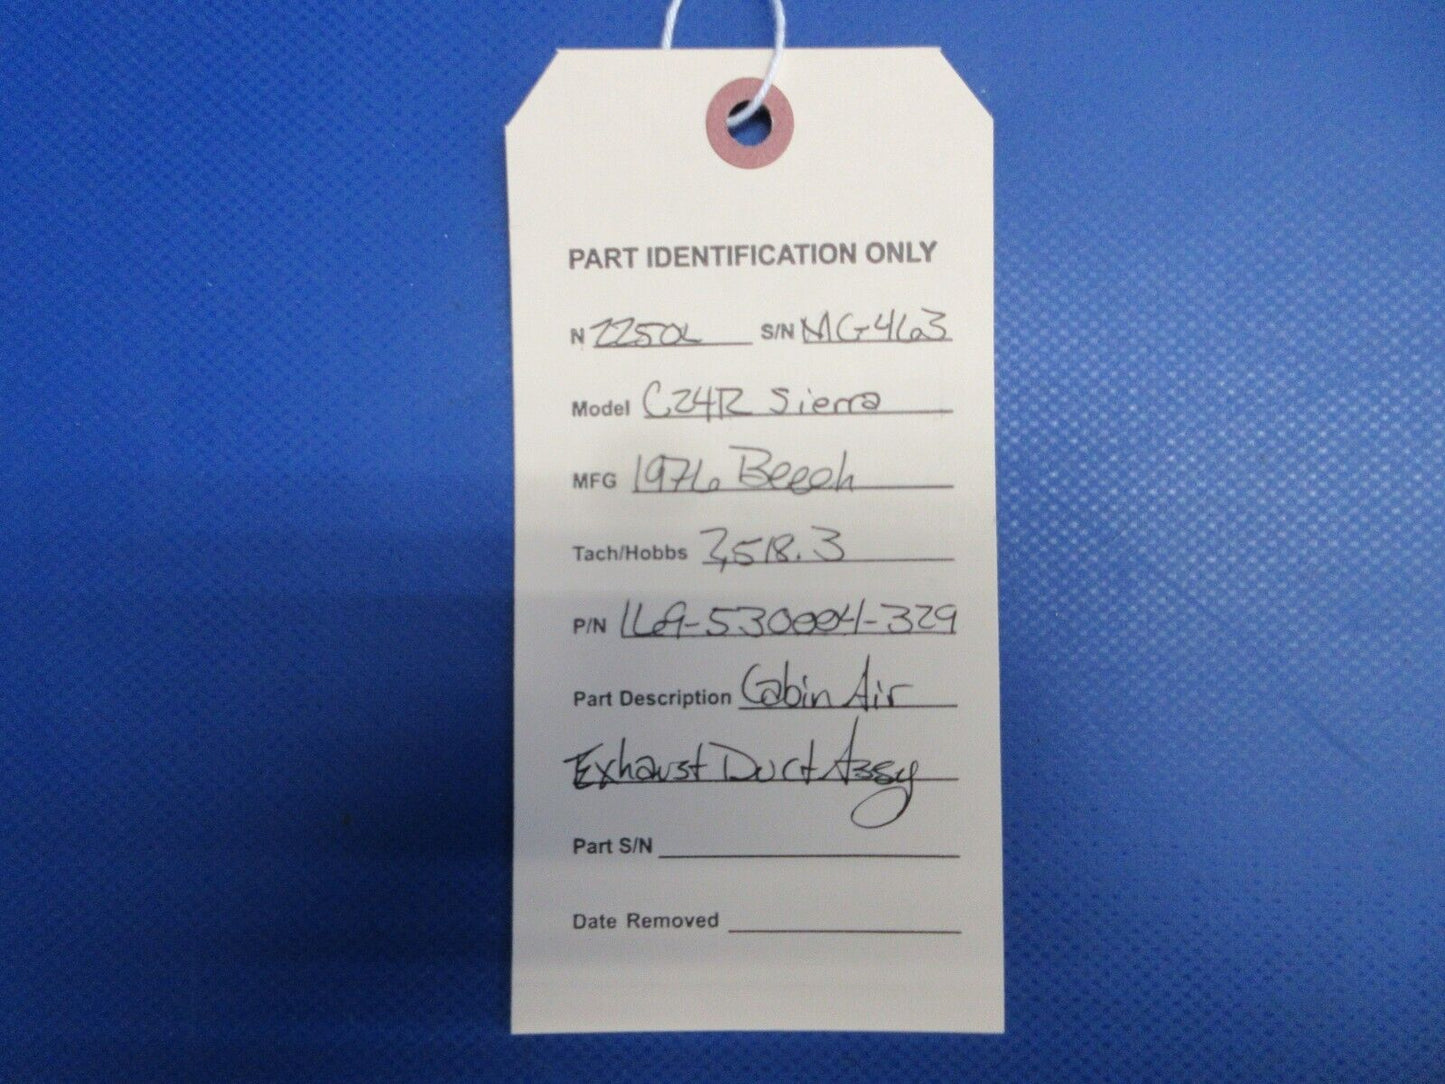 PART IDENTIFICATION ONLY
N 2250L S/N MC-463
Model C24R Sierra
MFG 1976 Beech
Tach/Hobbs 2,518.3
P/N 169-530004-329
Part Description Cabin Air
Exhaust Duct Assy
Part S/N
Date Removed